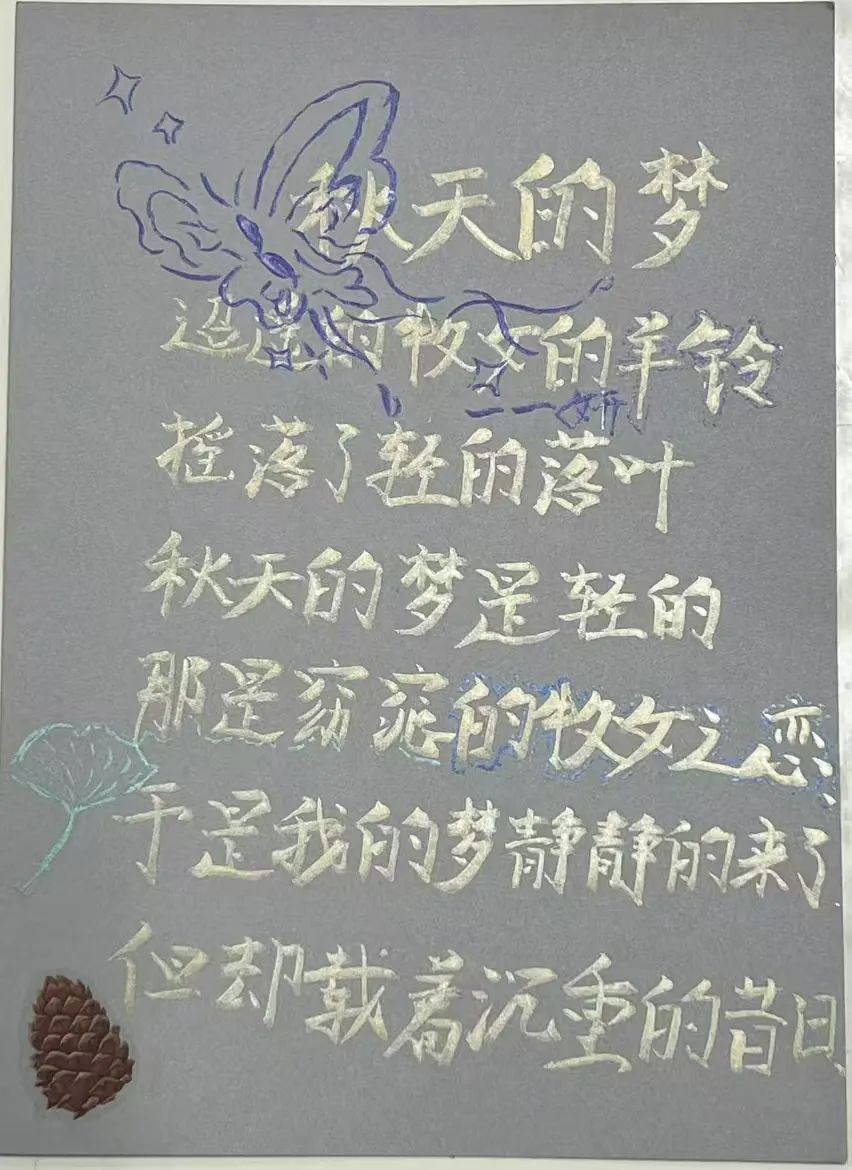 秋天的梦
迢遥的牧女的羊铃
——妍
摇落了轻的落叶
秋天的梦是轻的
那是窈窕的牧女之恋
于是我的梦静静的来了
但却载着沉重的昔日